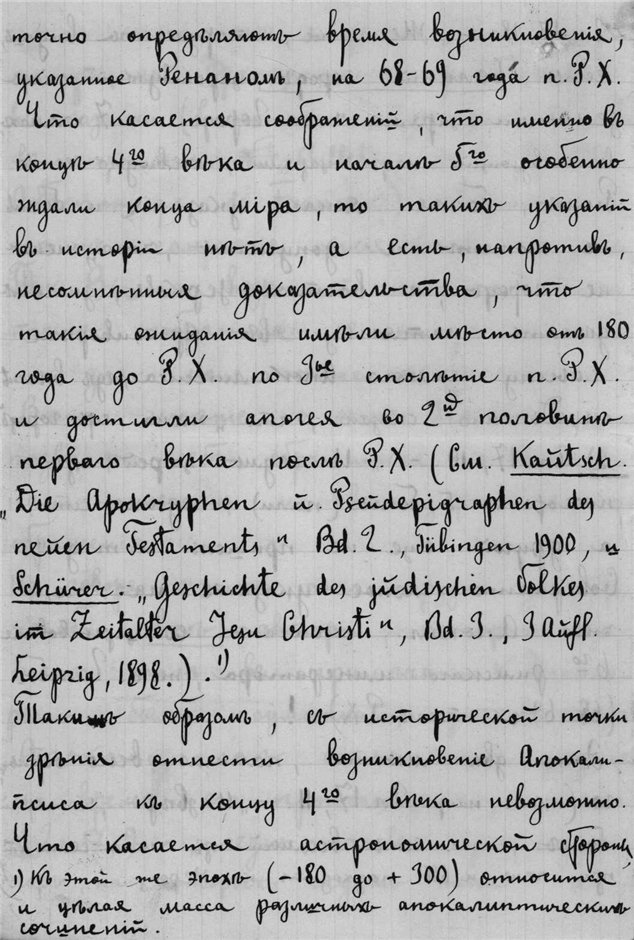 точно опредѣляютъ время возникновенія,
указанное Ренаномъ, на 68-69 года п. Р. Х.
Что касается соображеній, что именно въ
концѣ 4го вѣка и началѣ 5го особенно
ждали конца міра, то такихъ указаній
въ исторіи нѣтъ, а есть, напротивъ,
несомнѣнныя доказательства, что
такія ожиданія имѣли мѣсто отъ 180
года до Р. Х. по Iое столѣтіе п. Р. Х.
и достигли апогея во 2й половинѣ
перваго вѣка послѣ Р. Х. (См. Kautsch.
„Die Apokryphen u. Pseudepigraphen des
neuen Testaments" Bd. 2., Tübingen 1900, и
Schürer. „Geschichte des jüdischen Volkes
im Zeitalter Jesu Christi", Bd. 3., 3 Aufl.
Leipzig, 1898.).¹)
Такимъ образомъ, съ исторической точки
зрѣнія отнести возникновеніе Апокали-
псиса къ концу 4го вѣка невозможно.
Что касается астрономической стороны,
1) Къ этой же эпохѣ (-180 до + 300) относится
и цѣлая масса различныхъ апокалиптическихъ
сочиненій.